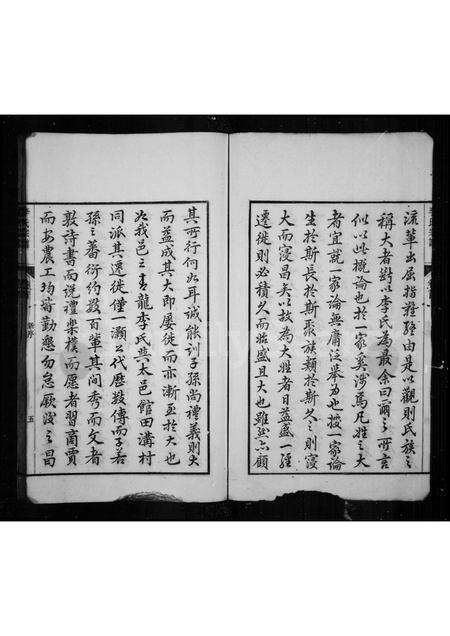 流輩出屈指難終由是以觀則氏族之
稱大者斷以李氏為最余曰爾之所言
似以此概論也於一家奚涉焉凡姓之大
者宜就一家論無庸泛舉為也按一家論
生於斯長於斯聚族類於斯久之則寖
大而寖昌矣以故為大姓者日益盛一經
遷徙則必積久而臨盛且大也雖然亦顧
其所行何如耳誠能訓子孫尚禮義則大
而益成其大即屢徙而亦漸至於大也
如我邑之青龍李氏與太邑館田溝村
同派其遷徙僅一灝公代歷數傳而子若
孫之蕃衍約數百輩其間秀而文者
敦詩書而說禮樂樸而愿者習商賈
而安農工均皆勤懇勿怠厥後之昌
新序
五